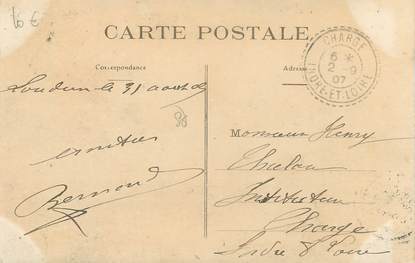 10 €
CARTE POSTALE
Correspondance
Adresse
CHARGE
6 *
2 - 9
07
INDRE-ET-LOIRE
Loudun le 31 aout
98
amitiés
Bernard
Monsieur Henry
Instituteur
Chargé
Indre & Loire